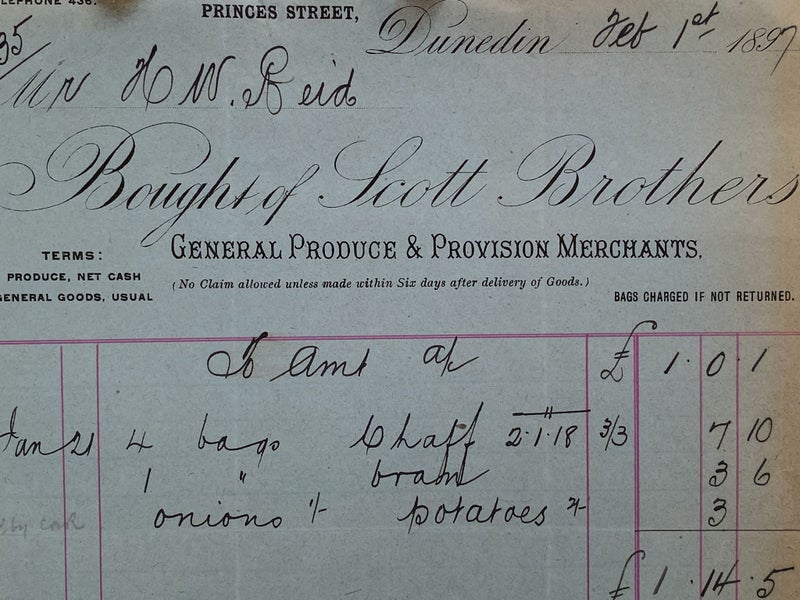 TELEPHONE 436.
PRINCES STREET,
Dunedin Feb 1st 1897
35/
Mr H W. Reid
Bought of Scott Brothers
GENERAL PRODUCE & PROVISION MERCHANTS,
TERMS:
PRODUCE, NET CASH
GENERAL GOODS, USUAL
(No Claim allowed unless made within Six days after delivery of Goods.)
BAGS CHARGED IF NOT RETURNED.
To Amt a/c £ 1 . 0 . 1
Jan 21 4 bags Chaff 2.1.18 3/3 7 10
1 " bran 3 6
onions 1/- potatoes 2/- 3
by cash
£ 1 . 14 . 5